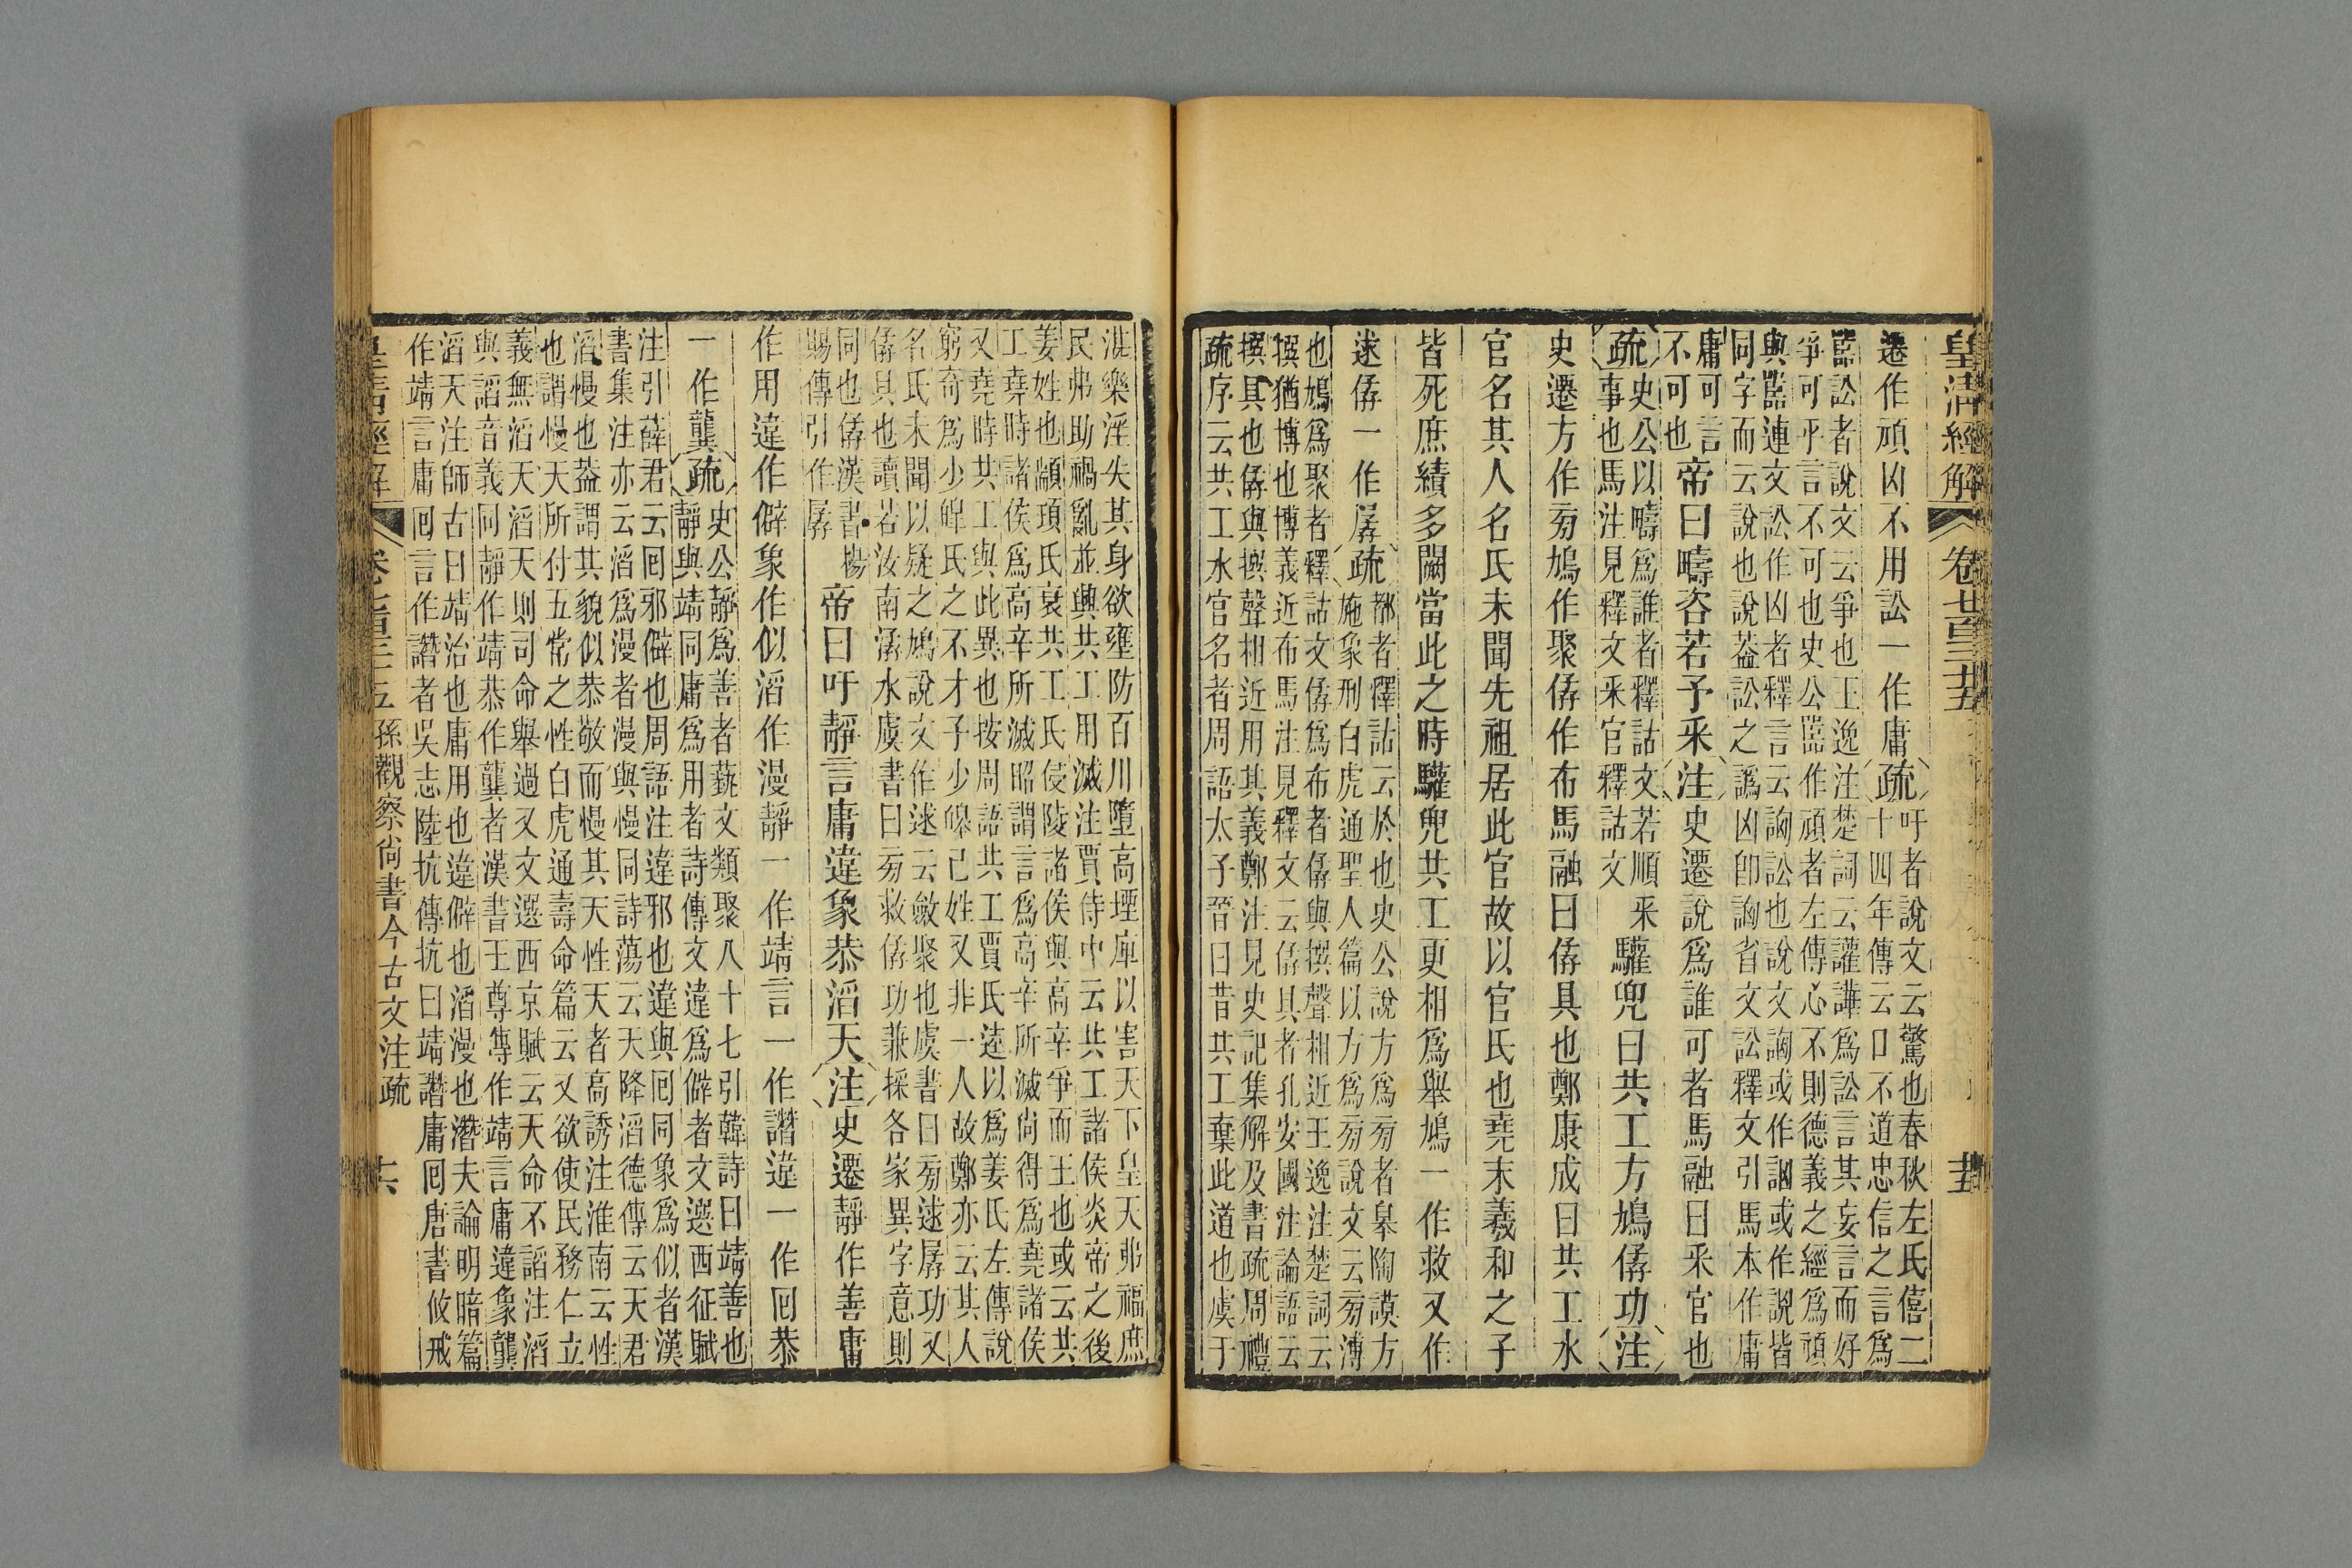 皇清經解 卷七百三十五 十五
遷作頑凶不用訟一作庸疏
吁者說文云驚也春秋左氏僖二
十四年傳云口不道忠信之言爲
嚚訟者說文云爭也王逸注楚詞云讙譁爲訟言其妄言而好
爭可乎言不可也史公嚚作頑者左傳心不則德義之經爲頑
與嚚連文訟作凶者釋言云訩訟也說文訩或作䛐或作說皆
同字而云說也說葢訟之譌凶卽訩省文訟釋文引馬本作庸
庸可言
不可也
帝曰疇咨若予采注史遷說爲誰可者馬融曰采官也
疏
史公以疇爲誰者釋詁文若順采
事也馬注見釋文采官釋詁文
驩兜曰共工方鳩僝功注
史遷方作㫄鳩作聚僝作布馬融曰僝具也鄭康成曰共工水
官名其人名氏未聞先祖居此官故以官氏也堯末羲和之子
皆死庶績多闕當此之時驩兜共工更相爲舉鳩一作救又作
逑僝一作孱疏
都者釋詁云於也史公說方爲㫄者皋陶謨方
施象刑白虎通聖人篇以方爲㫄說文云㫄溥
也鳩爲聚者釋詁文僝爲布者僝與撰聲相近王逸注楚詞云
撰猶博也博義近布馬注見釋文云僝具者孔安國注論語云
撰具也僝與撰聲相近用其義鄭注見史記集解及書疏周禮
疏序云共工水官名者周語太子晉曰昔共工棄此道也虞于
湛樂淫失其身欲壅防百川墮高堙庳以害天下皇天弗福庶
民弗助禍亂並興共工用滅注賈侍中云共工諸侯炎帝之後
姜姓也顓頊氏衰共工氏侵陵諸侯與高辛爭而王也或云共
工堯時諸侯爲高辛所滅昭謂言爲高辛所滅尚得爲堯諸侯
又堯時共工與此異也按周語共工賈氏逵以爲姜氏左傳說
窮奇爲少皞氏之不才子少皞己姓又非一人故鄭亦云其人
名氏未聞以疑之鳩說文作逑云斂聚也虞書曰㫄逑孱功又
僝具也讀若汝南潺水虞書曰㫄救僝功兼採各家異字意則
同也僝漢書楊
賜傳引作孱
帝曰吁靜言庸違象恭滔天注史遷靜作善庸
作用違作僻象作似滔作漫靜一作靖言一作譖違一作囘恭
一作龔疏
史公靜爲善者蓺文類聚八十七引韓詩曰靖善也
靜與靖同庸爲用者詩傳文違爲僻者文選西征賦
注引薛君云囘邪僻也周語注違邪也違與囘同象爲似者漢
書集注亦云滔爲漫者漫與慢同詩蕩云天降滔德傳云天君
滔慢也葢謂其貌似恭敬而慢其天性天者高誘注淮南云性
也謂慢天所付五常之性白虎通壽命篇云又欲使民務仁立
義無滔天滔天則司命舉過又文選西京賦云天命不謟注滔
與謟音義同靜作靖恭作龔者漢書王尊傳作靖言庸違象龔
滔天注師古曰靖治也庸用也違僻也滔漫也潛夫論明暗篇
作靖言庸囘言作譖者吳志陸抗傳抗曰靖譖庸囘唐書攸戒
皇清經解 卷七百三十五 孫觀察尚書今古文注疏 十六